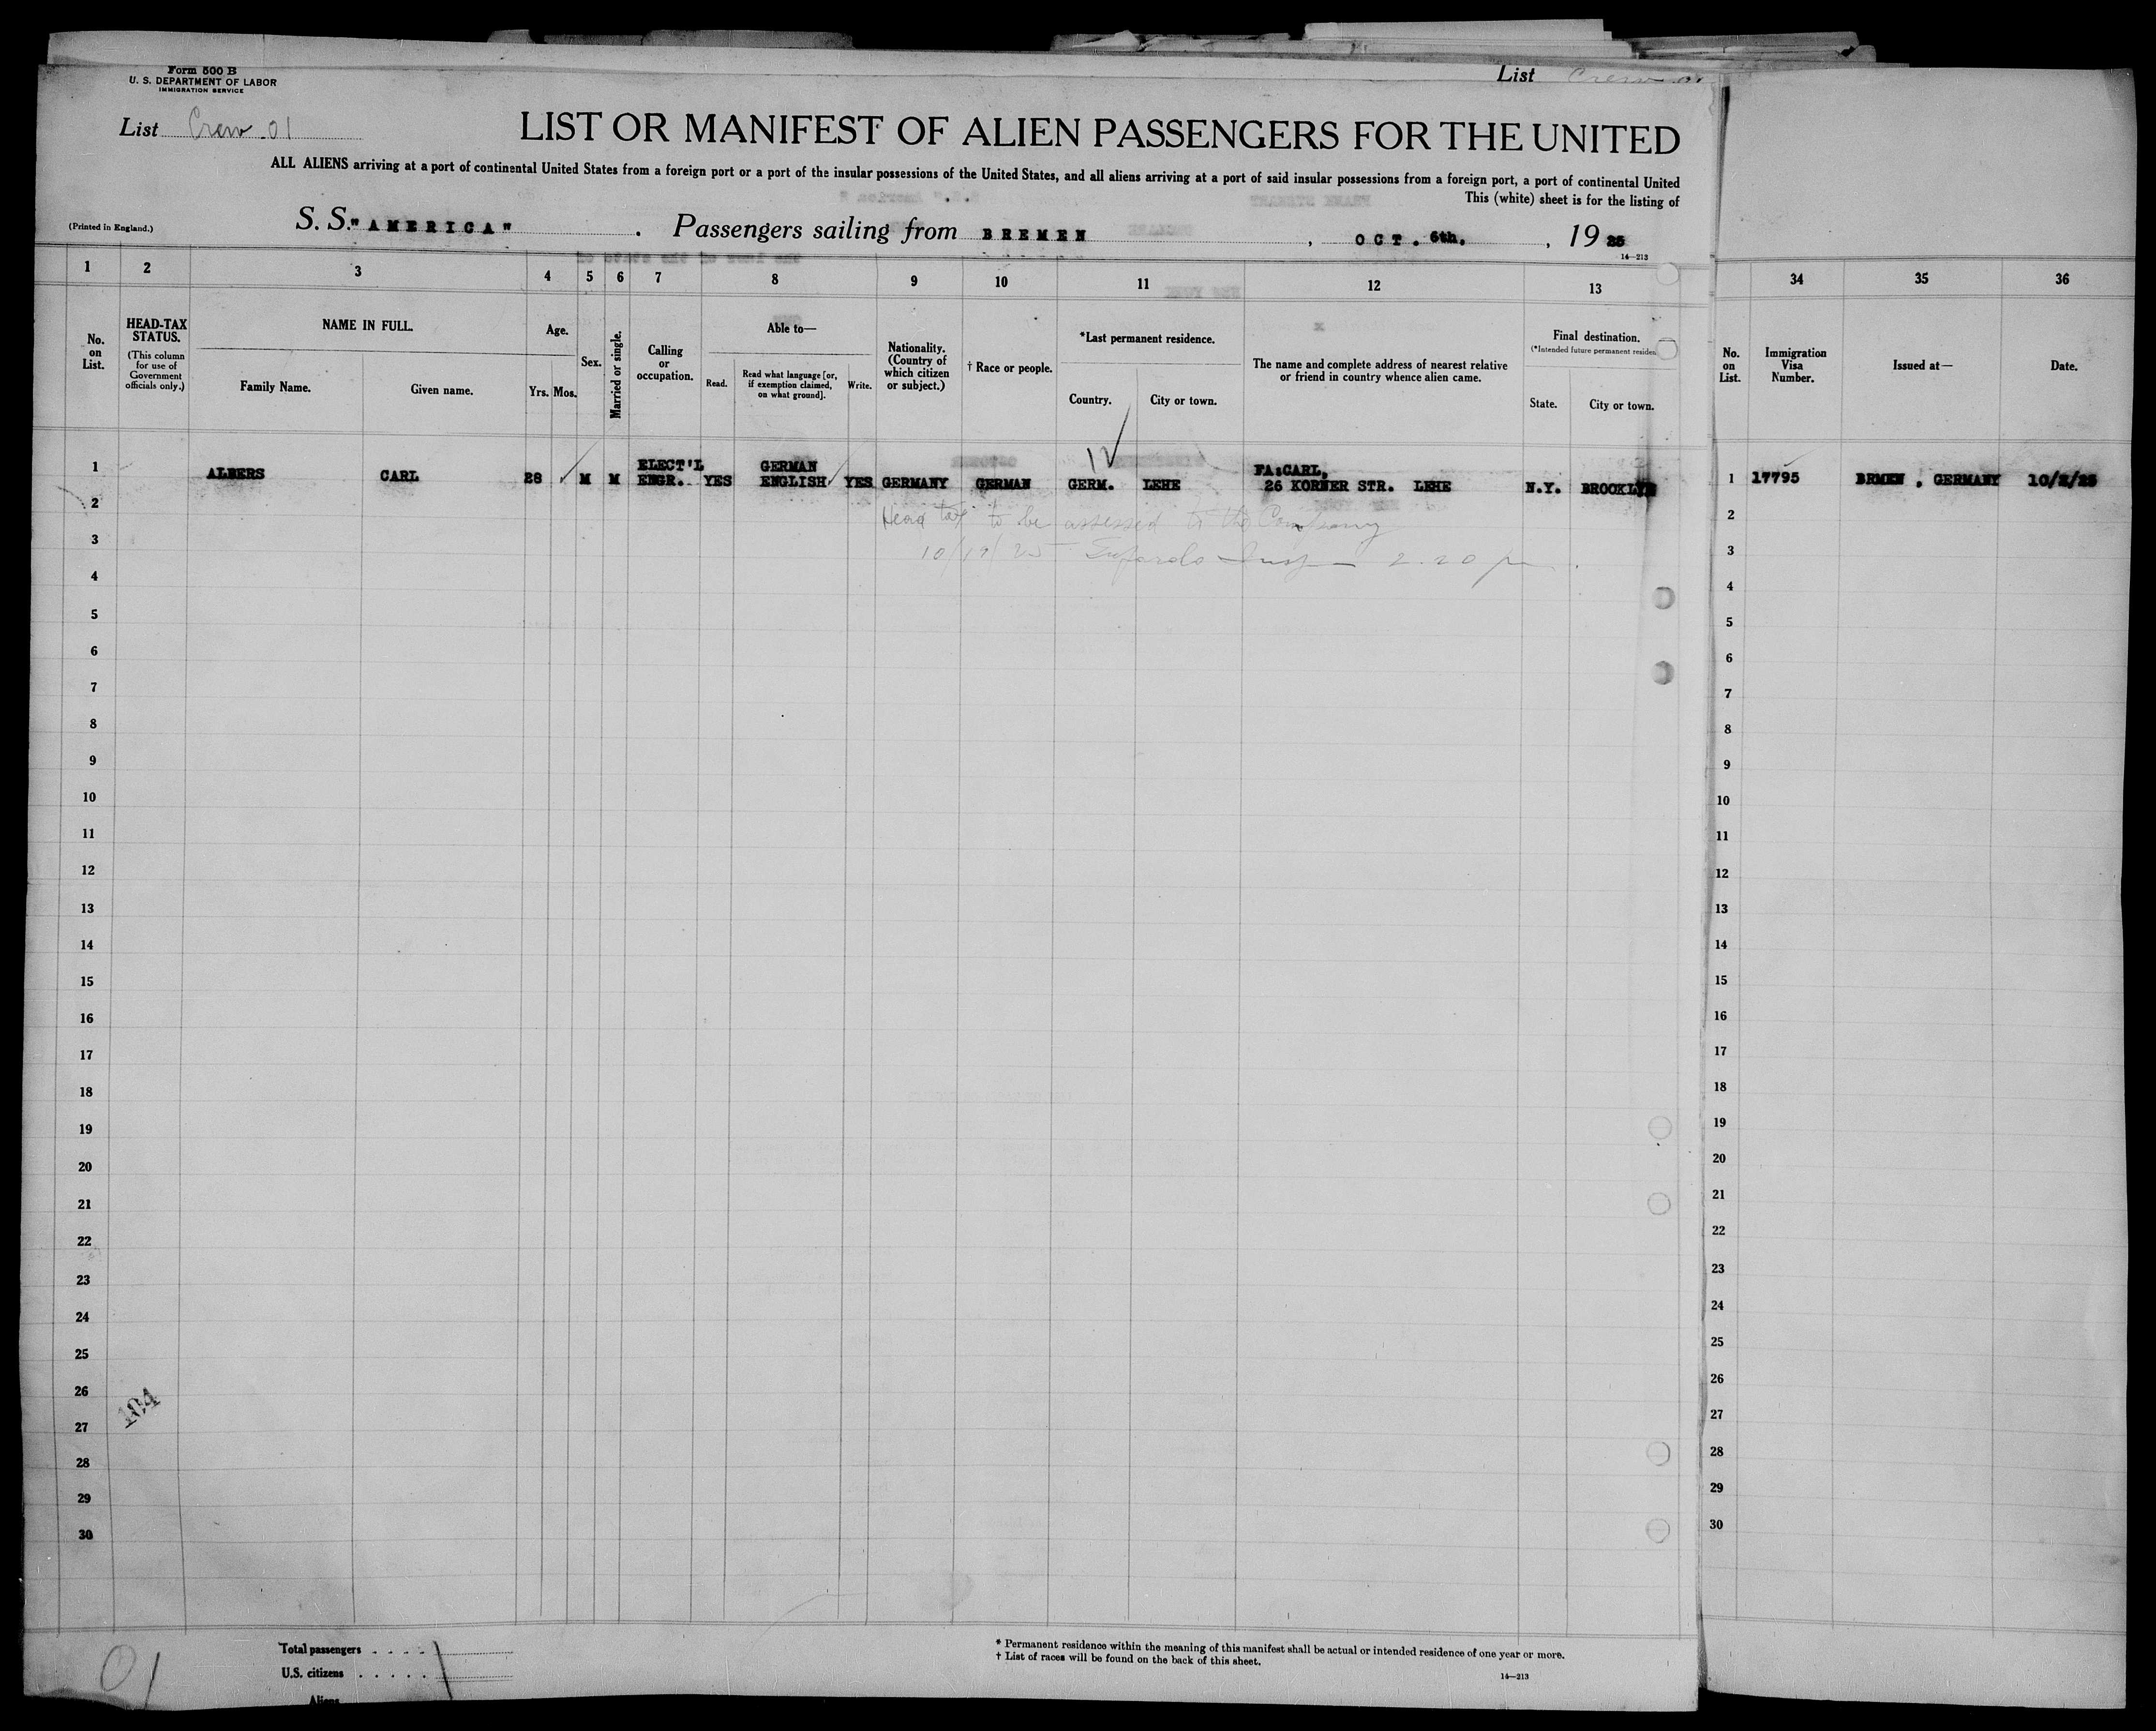 Form 500 B
U. S. DEPARTMENT OF LABOR
IMMIGRATION SERVICE
List Crew 01
List Crew 01
LIST OR MANIFEST OF ALIEN PASSENGERS FOR THE UNITED
ALL ALIENS arriving at a port of continental United States from a foreign port or a port of the insular possessions of the United States, and all aliens arriving at a port of said insular possessions from a foreign port, a port of continental United
This (white) sheet is for the listing of
(Printed in England.)
S. S. "AMERICA" . Passengers sailing from BREMEN , OCT. 6th. , 19 25
14—213
1 2 3 4 5 6 7 8 9 10 11 12 13 34 35 36
No. on List.
HEAD-TAX STATUS.
(This column for use of Government officials only.)
NAME IN FULL.
Family Name.
Given name.
Age.
Yrs. Mos.
Sex.
Married or single.
Calling or occupation.
Able to—
Read.
Read what language [or, if exemption claimed, on what ground].
Write.
Nationality. (Country of which citizen or subject.)
† Race or people.
*Last permanent residence.
Country.
City or town.
The name and complete address of nearest relative or friend in country whence alien came.
Final destination.
(*Intended future permanent
State.
City or town.
No. on List.
Immigration Visa Number.
Issued at—
Date.
1 ALBERS CARL 28 M M ELECT'L ENGR. YES GERMAN ENGLISH YES GERMANY GERMAN GERM. LEHE FA:CARL, 26 KORNER STR. LEHE N.Y. BROOKLYN 1 17795 BRMEN , GERMANY 10/2/25
Head tax to be assessed to the Company
10/19/25 2.20 pm
2 2
3 3
4 4
5 5
6 6
7 7
8 8
9 9
10 10
11 11
12 12
13 13
14 14
15 15
16 16
17 17
18 18
19 19
20 20
21 21
22 22
23 23
24 24
25 25
26 26
104
27 27
28 28
29 29
30 30
01
Total passengers . . . .
U.S. citizens . . . . .
Aliens
* Permanent residence within the meaning of this manifest shall be actual or intended residence of one year or more.
† List of races will be found on the back of this sheet.
14—213